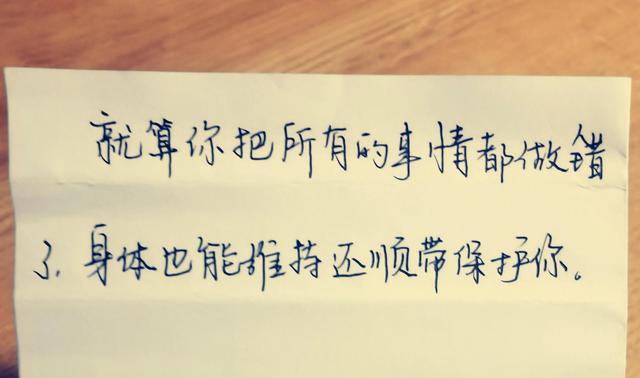 就算你把所有的事情都做错
了.身体也能维持还顺带保护你。